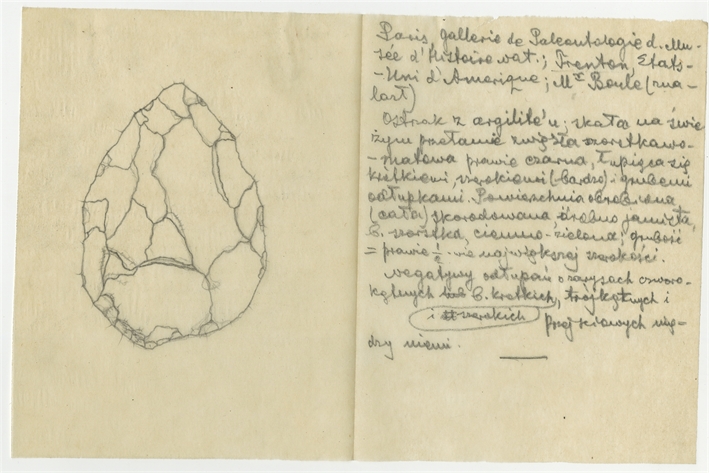 Paris, gallerie de Paleontologie d. Mu-
sée d'Histoire nat.; Trenton, Etats-
-Uni d'Amerique; Mr Boule (zna-
lazł)
Ostrak z argilite'u; skała na świe
żym przełamie zwięzła szorstkawo-
-matowa prawie czarna, łupiąca się
krótkiemi, szerokiemi (-bardzo) i grubemi
odłupkami. Powierzchnia obrobiona
(cała) skorodowana, drobno jamista,
b. szorstka, ciemno-zielona; grubość
= prawie największej szerokości.
negatywy odłupań o zarysach czworo-
kątnych b. krótkich, trójkątnych i
i szerokich
przejściowych mię-
dzy niemi.